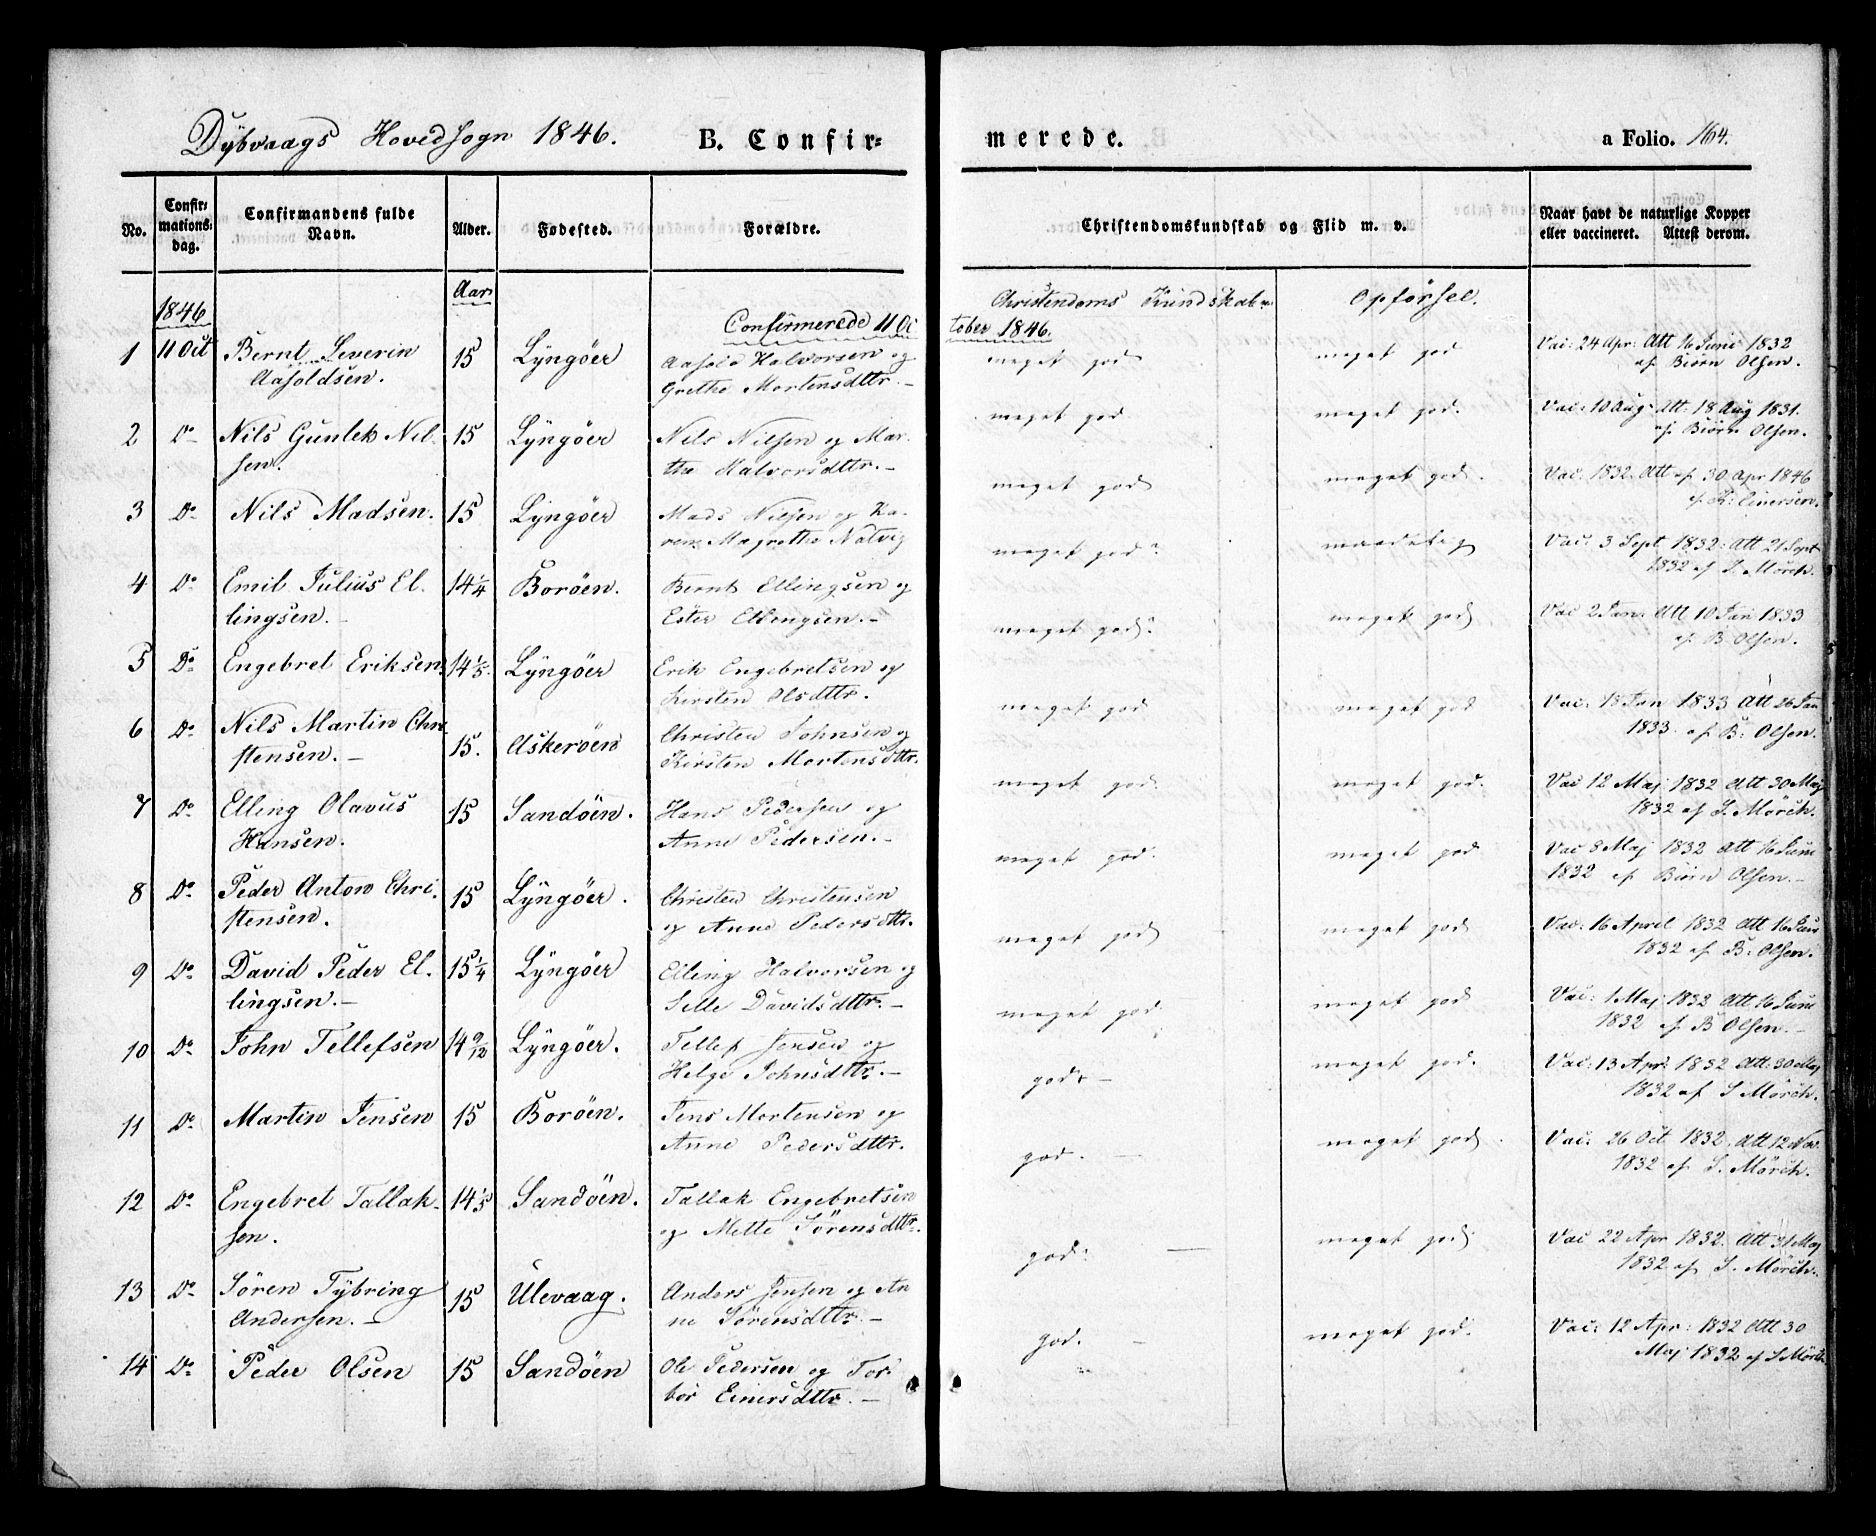 Dybvaags Hovedsogn 1846. B. Confir-
merede. a Folio. 164.
No. Confir-mations-dag. Confirmandens fulde Navn. Alder. Fødested. Forældre.
Christendomskundskab og Flid m. v. Naar havt de naturlige Kopper eller vaccineret. Attest derom.
Aar
1846 Confirmerede 11 Oc
tober 1846.
Christendoms Kundskab Opförsel.
1 11 Oct Bernt Severin 15 Lyngöer Aasold Halvorsen og meget god meget god Vac: 24 Apr: Att 16 Juni 1832
Aasoldsen. Grethe Mortensdttr. – af Biörn Olsen.
2 Do Nils Gunlek Nil- 15 Lyngöer Nils Nilsen og Mar- meget god meget god. Vac: 10 Aug: Att: 18 Aug 1831.
sen. the Halvorsdttr. – af Biörn Olsen.
3 Do Nils Madsen. 15 Lyngöer Mads Nilsen og Ka- meget god meget god. Vac: 1832. Att af 30 Apr 1846
ren Magrethe Nalvig af K: Einersen.
4 Do Emil Julius El- 14 1/4 Boröen. Bernt Ellingsen og meget god maadelig Vac: 3 Sept 1832: Att 21 Sept
lingsen. – Ester Ellingsen. – 1832 af S. Mörch.
5 Do Engebret Eriksen. 14 1/5. Lyngöer Erik Engebretsen og meget god. meget god Vac 2 Jan. Att 10 Jan 1833
Kirsten Olsdttr. af B. Olsen.
6 Do Nils Martin Chri 15. Askeröen Christen Johnsen og meget god meget god Vac: 18 Jan 1833 Att 26 Jan
stensen. – Kirsten Mortensdttr. 1833 af B: Olsen.
7 Do Elling Olavus 15 Sandöen. Hans Pedersen og meget god. meget god. Vac 12 Maj 1832 Att 30 Maj
Hansen. Anne Pedersen. – 1832 af S. Mörch.
8 Do Peder Anton Chri- 15 Lyngöer. Christen Christensen meget god. meget god Vac 8 Maj 1832 Att 16 Juni
stensen. og Anne Pedersdttr. 1832 af Biörn Olsen. –
9 Do David Peder El- 15 1/4 Lyngöer Elling Halvorsen og meget god meget god Vac: 16 April 1832 Att 16 Juni
lingsen. – Sille Davidsdttr. – 1832 af B: Olsen.
10 Do John Tellefsen 14 9/12 Lyngöer. Tellef Jensen og meget god meget god Vac: 1 Maj 1832 Att 16 Juni
Helge Johnsdttr. – 1832 af B Olsen. –
11 Do Martin Jensen 15 Boröen. Jens Mortensen og god – meget god. Vac: 13 Apr: 1832 Att: 30 Maj
Anne Pedersdttr. 1832 af S Mörch.
12 Do Engebret Tallak- 14 1/5 Sandöen. Tallak Engebretsen god. – meget god. Vac: 26 Oct 1832. Att 12 Nov.
sen. og Mette Sörensdttr. 1832 af S. Mörch.
13 Do Sören Tybring 15 Ulevaag. Anders Jensen og An god. – meget god. Vac 22 Apr 1832. Att 31 Maj
Andersen. – ne Sörensdttr – 1832 af S. Mörch.
14 Do Peder Olsen 15 Sandöen Ole Pedersen og Tor god. – meget god. Vac: 12 Apr: 1832 Att 30
bör Einersdttr. – Maj 1832 af S Mörch